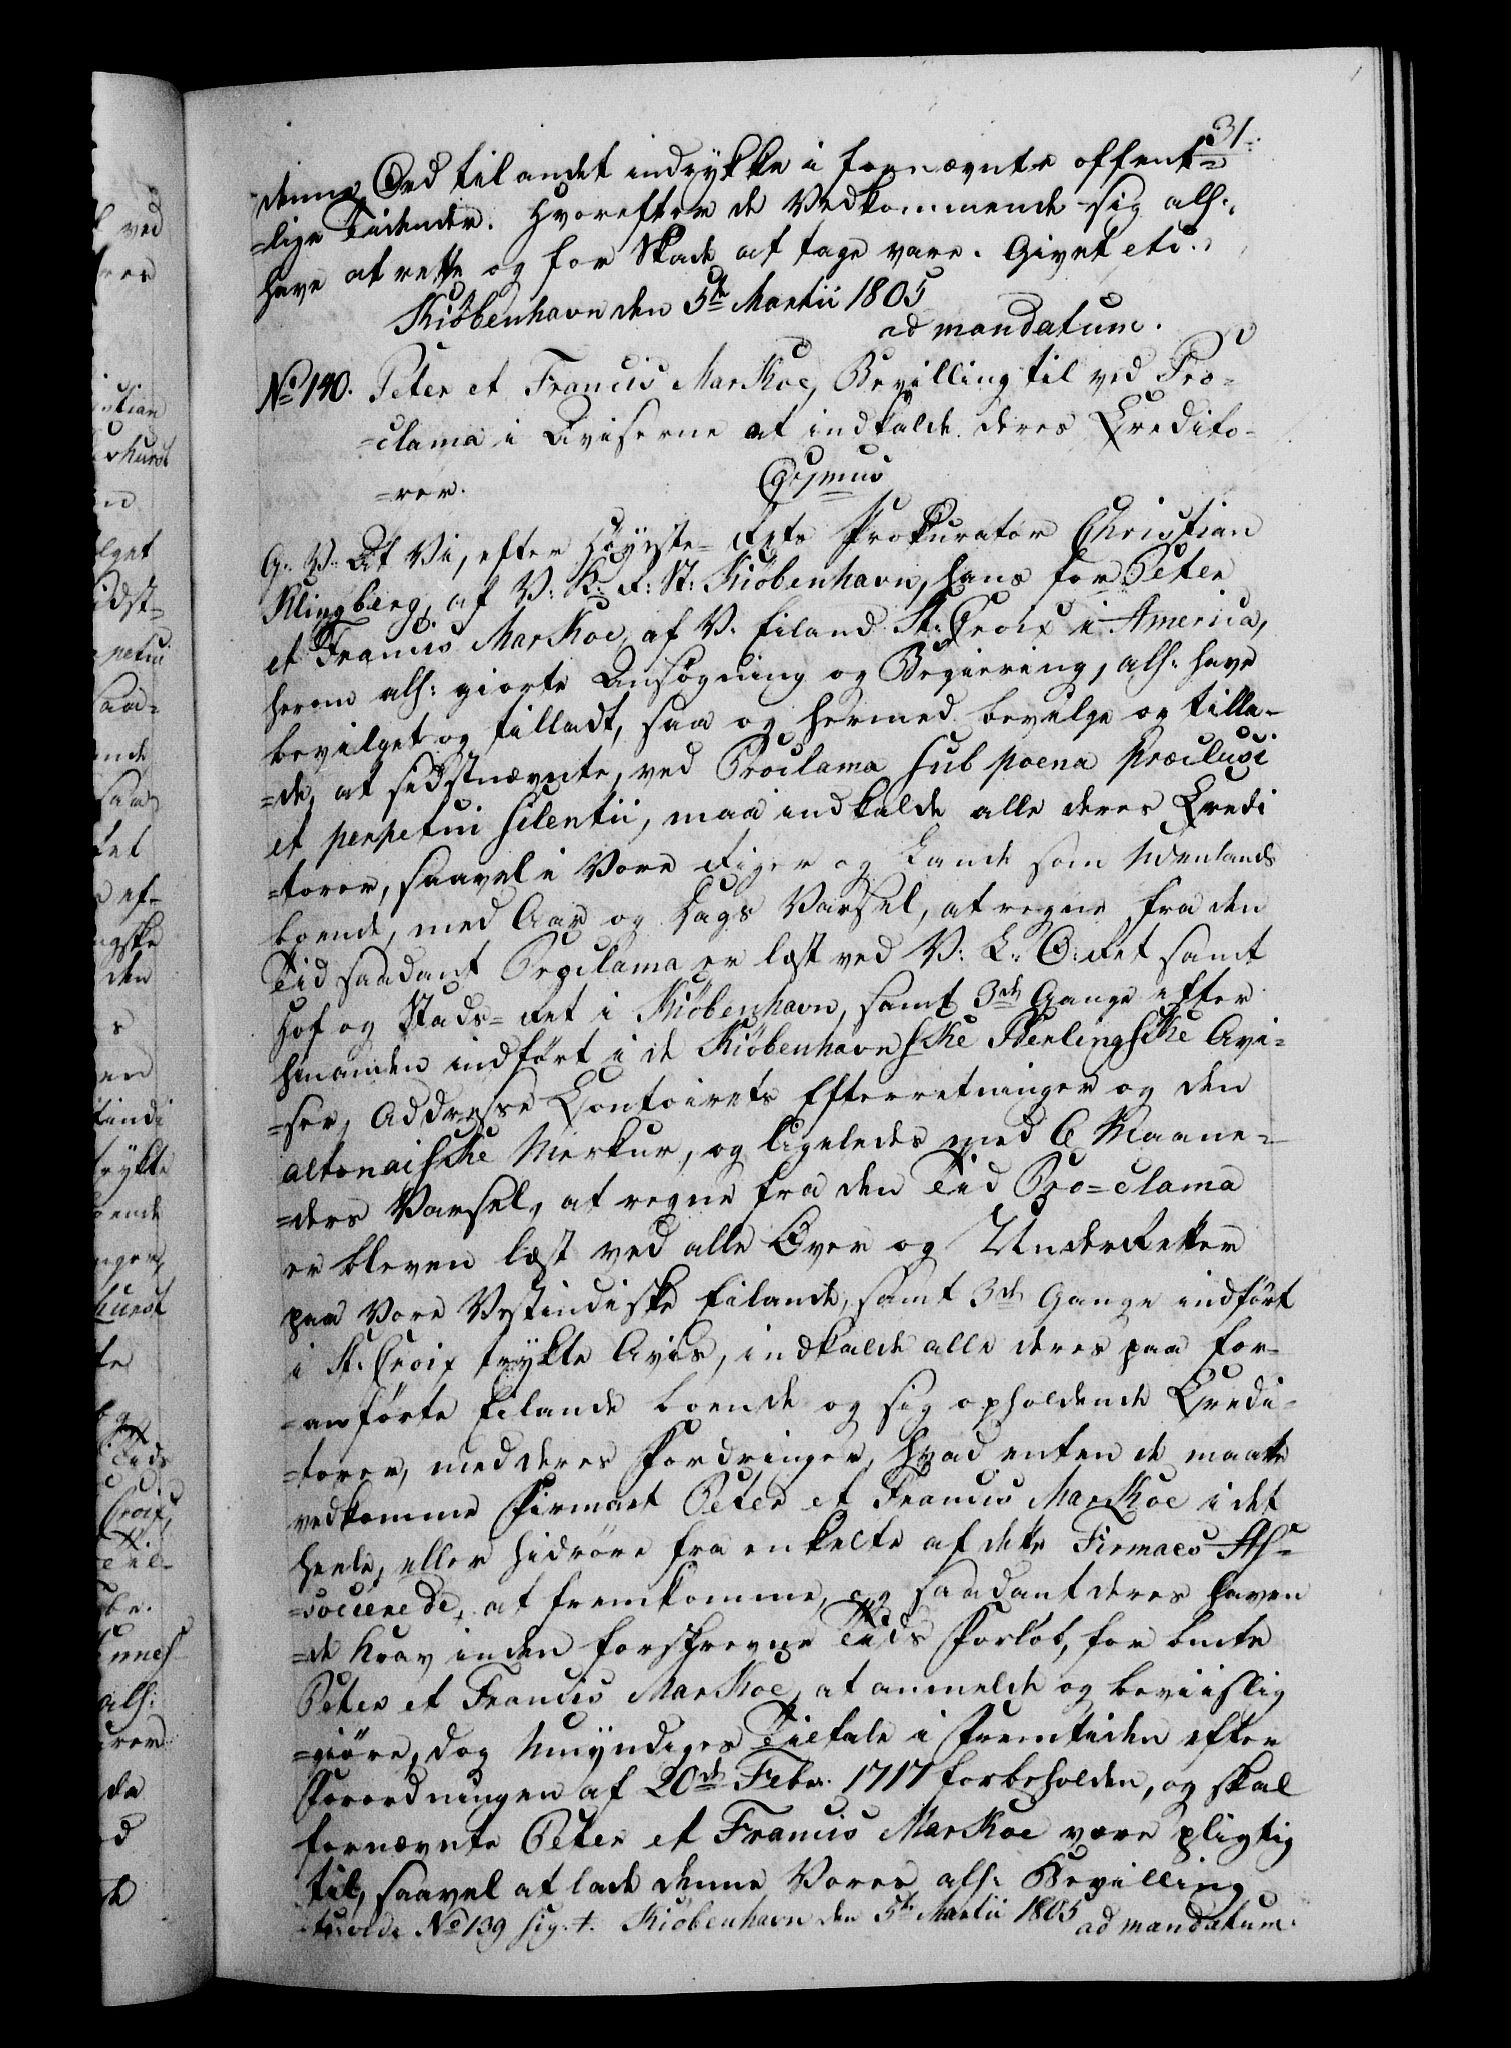 31.
denne, Ord til andet indrykke i fornævnte offent=
=lige Tidender. Hvorefter de Vedkommende sig alh:
have at rette og for Skade at tage vare. Givet etc.
Kiøbenhavn den 5te Martii 1805
ad mandatum.
No 140. Peter et Francis MarKoe, Bevilling til ved Pro=
=clama i Aviserne at indkalde deres Credito=
=rer. Gr̃mus
G. V. At Vi, efter Høyeste=Rets Prokurator Christian
Klingberg, af V: K: R: St: Kiøbenhavn, hans for Peter
et Francis MarKoe, af V. Eiland St: Croix i America,
herom alh: giorte Ansøgning og Begiering, alh: have
bevilget og tilladt, saa og hermed bevilge og tilla=
=de, at sidstnævnte, ved Proclama sub poena præclusi
et perpetui silentii, maa indkalde alle deres Credi
=torer, saavel i Vore Riger og Lande som Udenlands
boende, med Aar og Dags Varsel, at regne fra den
Tid saadant Proclama er læst ved V: L: O: Ret samt
Hof og Stads=Ret i Kiøbenhavn, samt 3de Gange efter
hinanden indført i de Kiøbenhavnske Berlingske Avi=
=ser, Addresse Contoirets Efterretninger og den
altonaiske Merkur, og ligeledes med 6 Maane=
=ders Varsel, at regne fra den Tid Pro=clama
er bleven læst ved alle Over og UnderRetter
paa Vore Vestindiske Eilande, samt 3de Gange indført
i St: Croix trykte Avis, indkalde alle deres paa for=
=anførte Eilande boende og sig opholdende Credi=
=torer, med deres Fordringer, hvad enten de maatte
vedkomme Firmaet Peter et Francis MarKoe i det
heele, eller hidrøre fra enkelte af dette Firmaes As=
=socierede, at fremkomme, og saadant deres haven
=de Krav inden forskrevne Tids Forløb, for bmte
Peter et Francis MarKoe, at anmelde og beviislig
=giøre, dog Umyndiges Tiltale i Fremtiden efter
Forordningen af 20de Febr. 1717 forbeholden, og skal
fornævnte Peter et Francis MarKoe være pligtig
til, saavel at lade denne Vores alh: Bevilling
No 139 sig. +. Kiøbenhavn den 5te Martii 1805 ad mandatum.